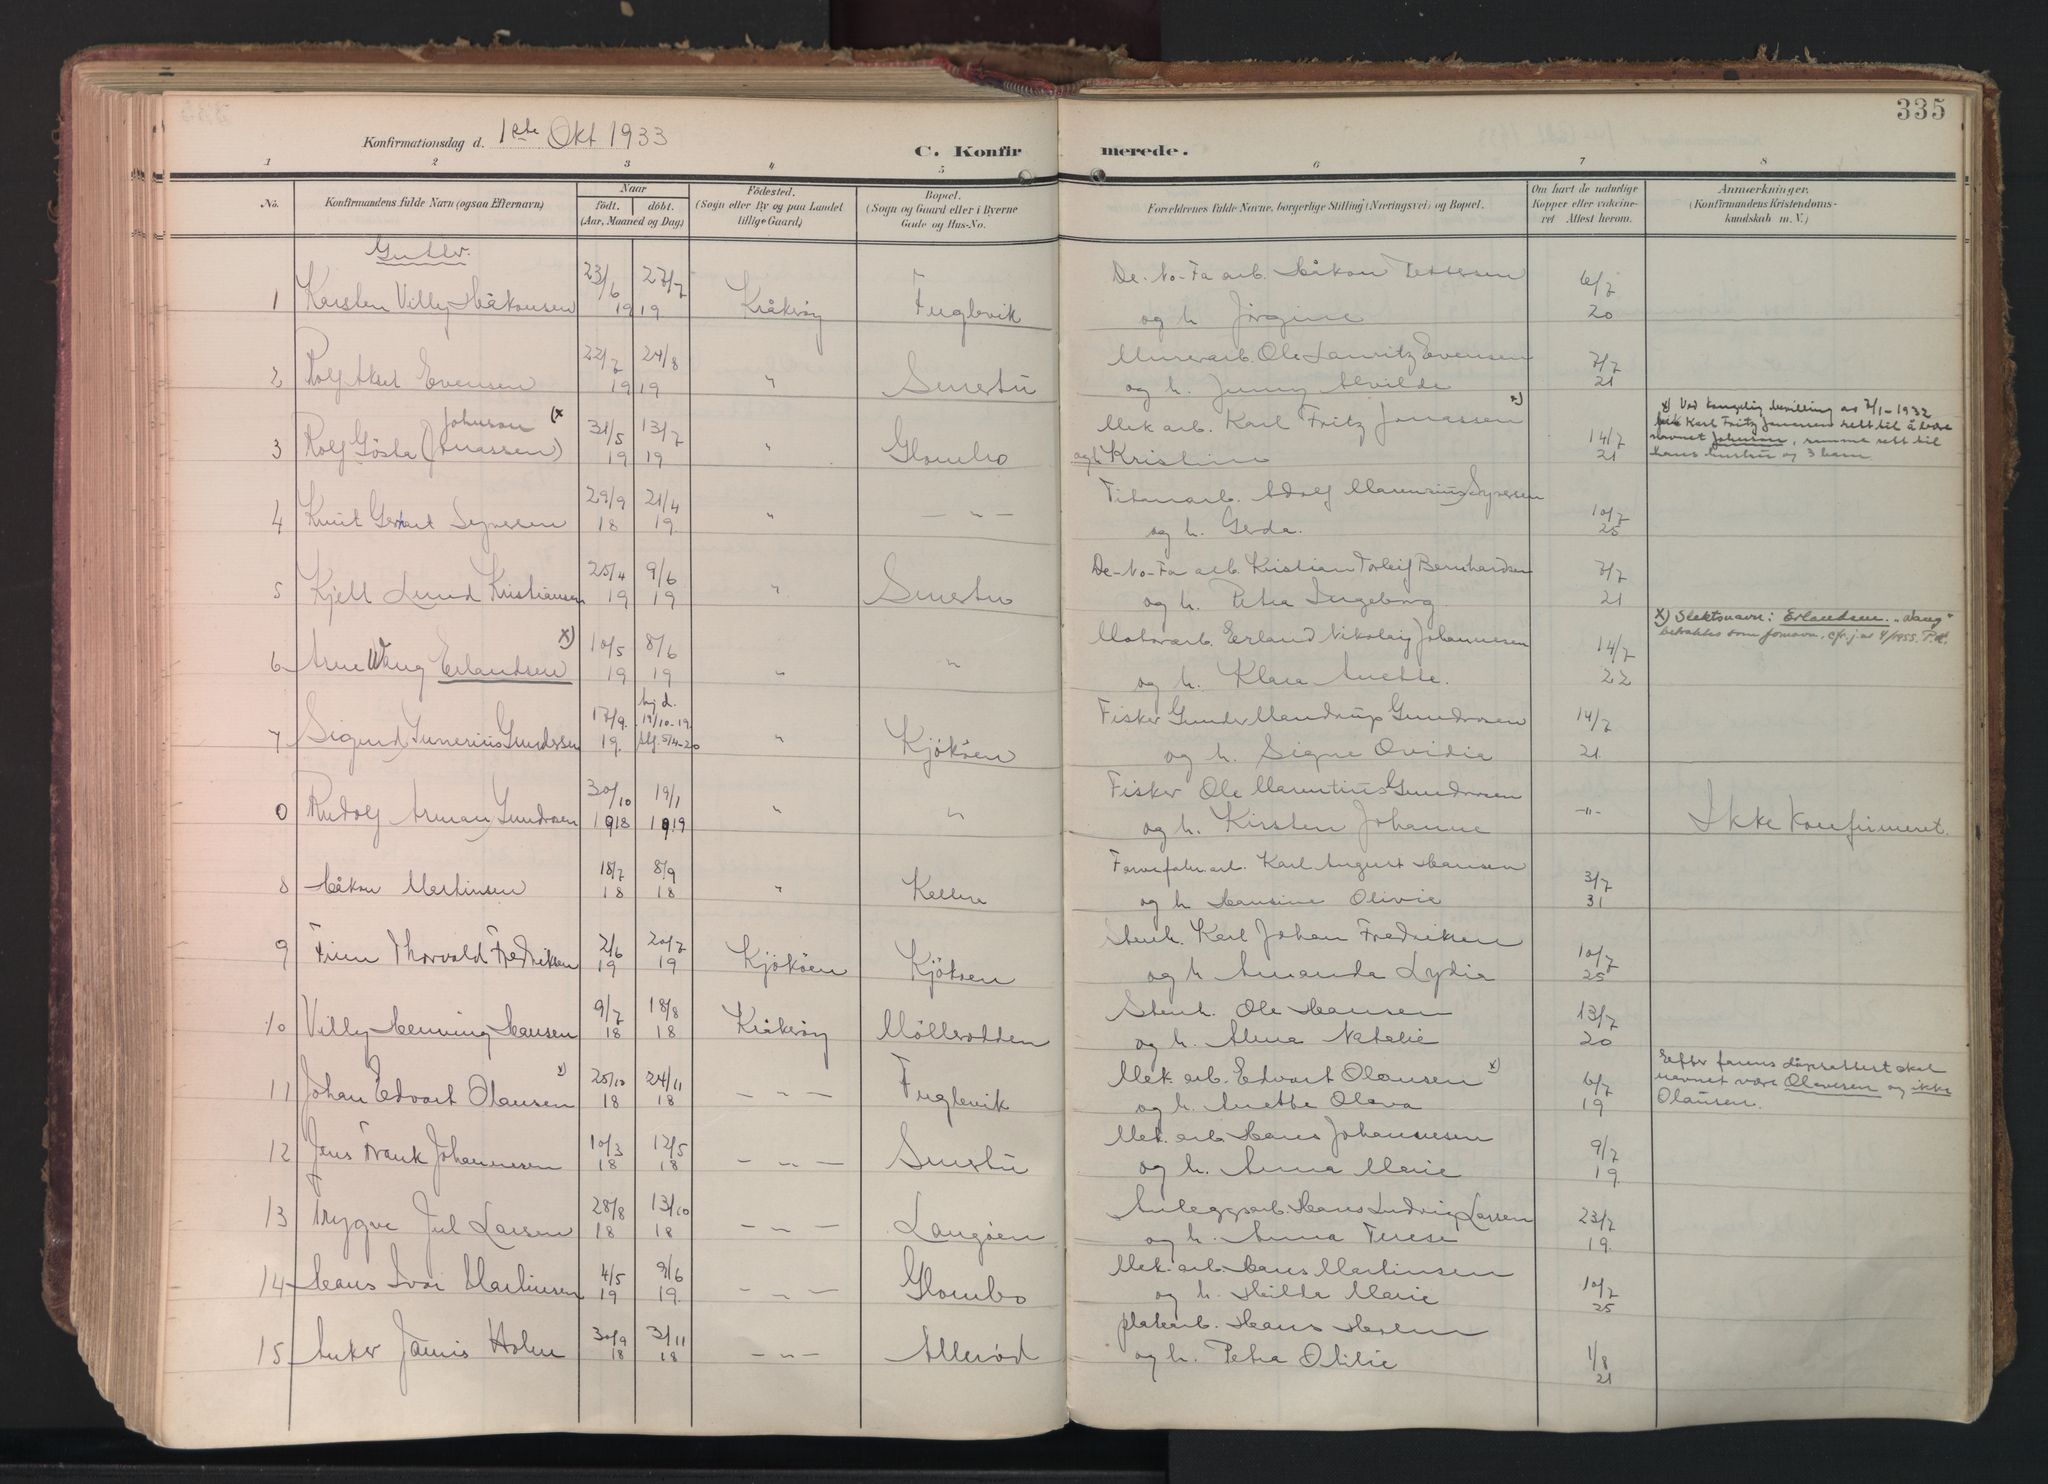 335
Konfirmationsdag d. 1ste Okt 1933
C. Konfirmerede.
1 2 3 4 5 6 7 8
No.
Konfirmandens fulde Navn (ogsaa Efternavn)
Naar
født. døbt.
(Aar, Maaned og Dag)
Fødested.
(Sogn eller By og paa Landet
tillige Gaard)
Bopæl.
(Sogn og Gaard eller i Byerne
Gade og Hus-No.
Forældrenes fulde Navne, borgerlige Stilling (Næringsvei) og Bopæl.
Om havt de naturlige
Kopper eller vakcine-
ret Attest herom.
Anmærkninger.
(Konfirmandens Kristendoms-
kundskab m. V.)
Gutter.
23/6 27/7 De-No-Fa arb. Håkon Pettersen 6/7
1 Karsten Villy Håkonsen 19 19 Kråkerøy Fuglevik og h. Jörgine 20
22/7 24/8 Murerarb. Ole Lauritz Evensen 7/7
2 Rolf Aksel Evensen 19 19 " Smertu og h. Jenny Alvilde 21
Johnson x) 31/5 13/7 Mek arb. Karl Fritz Jonassen x) 14/7
3 Rolf Gösta (Jonassen) 19 19 " Glombo og h. Kristine 21
x) Ved kongelig bevilling av 7/1-1932
fik Karl Fritz Jonassen rett til å bære
navnet Johnson, samme rett til
hans hustru og 3 barn
29/9 21/4 Titanarb. Adolf Marensius Syversen 10/7
4 Knut Syversen 18 19 " — " — og h. Gerda. 25
25/4 9/6 De-No-Fa arb. Kristian Torleif Bernhardsen 7/7
5 Kjell Lund Kristiansen 19 19 " Smertu og h. Petra Ingeborg. 21
x) 10/5 8/6 Motorarb. Erland Nikolaig Johannesen 14/7
6 Arne Wang Erlandsen 19 19 " " og h. Klara Anette. 22
x) Slektsnavn: Erlandsen. "Wang"
betraktes som fornavn, cfr. j.nr 4/1955.
17/9 hj. d. 19/10-19 Fisker Gunder Mandrup Gundersen 14/7
7 Sigurd Gundersen 19. 5/4-20 " Kjøköen og h. Signe Ovidia 21
30/10 19/1 Fisker Ole Marentius Gundersen
0 Rudolf Arman Gundersen 1918 1919 " " og h. Kirsten Johanne -"- Ikke konfirmeret.
18/7 8/9 Farvefabr. arb. Karl August Hansen 3/7
8 Håkon Martinsen 18 18 " og h Hansine Olivie 31
2/6 20/7 Stenh. Karl Johan Fredriksen 10/7
9 Finn Thorvald Fredriksen 19 19 Kjököen Kjököen og h Amanda Lydia 25
9/7 18/8 Stenh. Ole Hansen 13/7
10 Villy Henning Hansen 18 18 Kråkerøy Møllerodden og h. Alma Natalie 20
x) 25/10 24/11 Mek. arb. Edvart Olausen x) 6/7
11 Johan Edvart Olausen 18 18 — " — Fuglevik og h. Anette Olava 19
Efter farens dåpsattest skal
navnet være Olavesen og ikke
Olausen.
10/3 12/5 Mek. arb. Hans Johannesen 9/7
12 Jens Frank Johannesen 18 18 — " — Smertu og h. Anna Marie 19
28/8 13/10 Anleggsarb. Hans Ludvig Larsen 23/7
13 Trygve Jul Larsen 18 18 — " — Langöen og h. Anna Terese 19.
4/5 9/6 Mek. arb. Hans Martinsen 10/7
14 Hans Ivar Martinsen 19 19. — " — Glombo og h. Hilda Marie 25
30/9 3/11 platearb. Hans Holm
15 Anker Holm 18 18 — " — Allerød og h. Petra Otilie 1/8 21